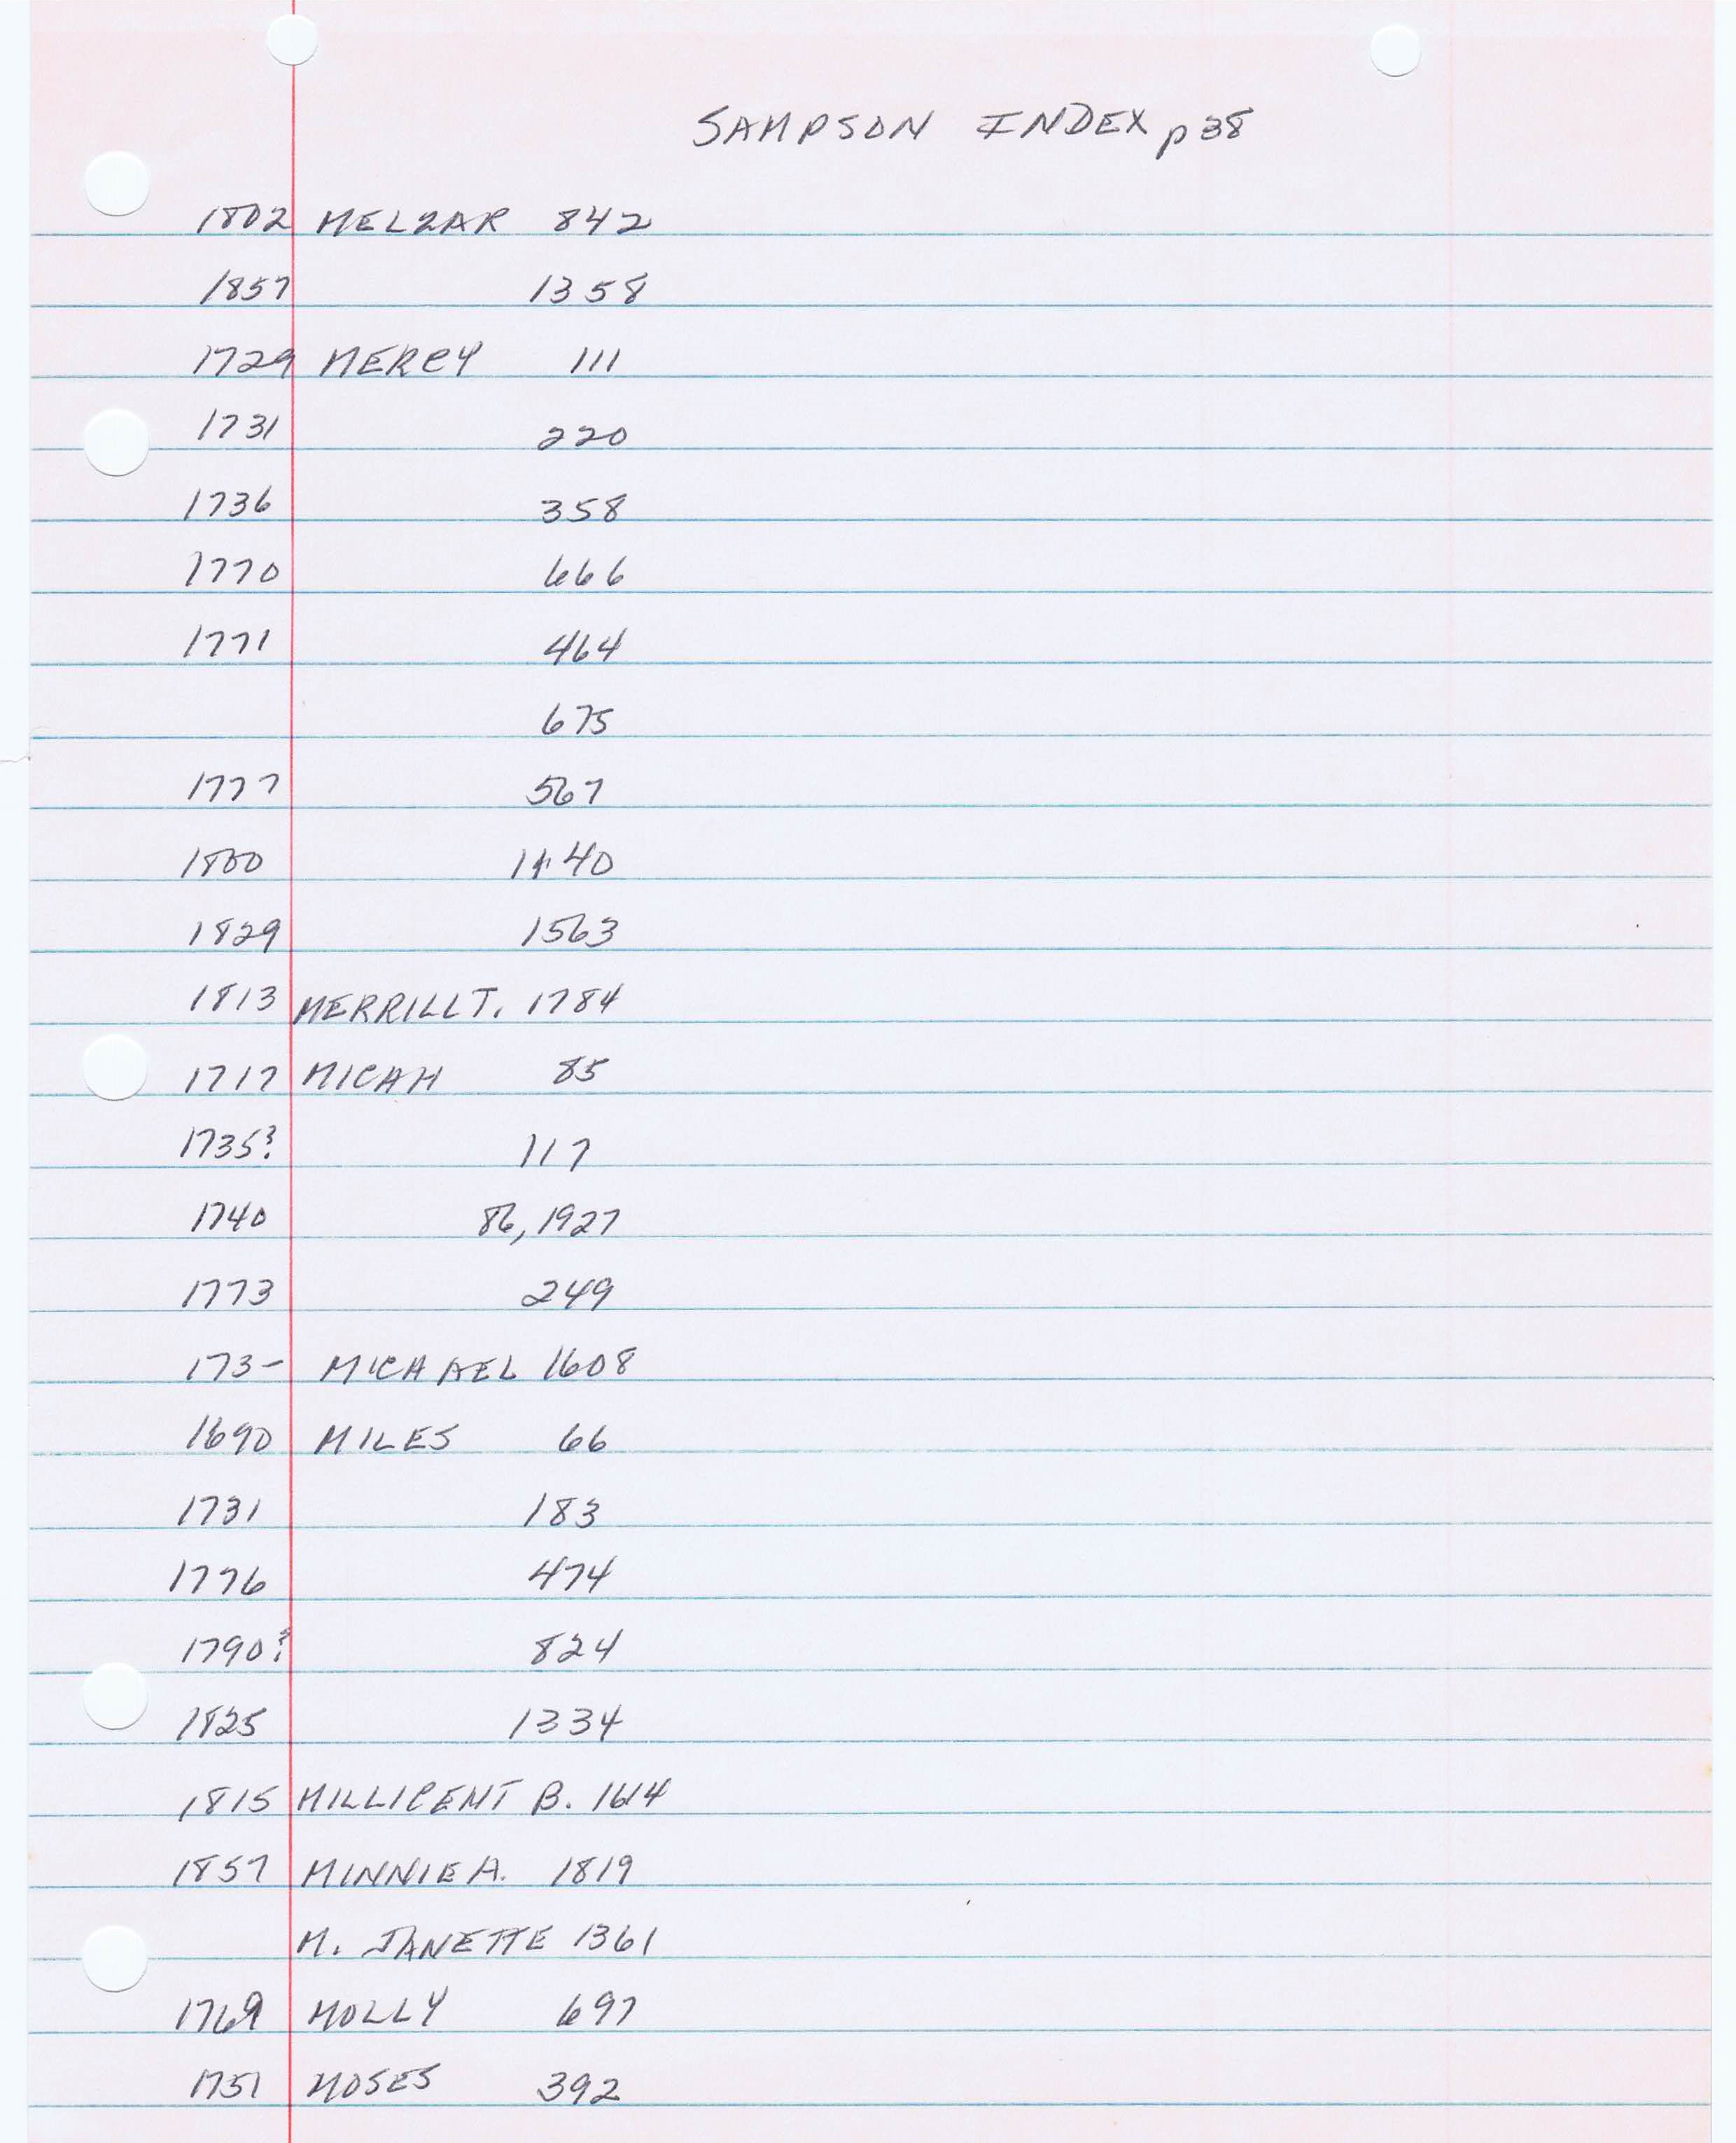 SAMPSON INDEX p38
1802 MELZAR 842
1857 1358
1729 MERCY 111
1731 220
1736 358
1770 666
1771 464
675
1777 567
1800 1140
1829 1563
1813 MERRILL T. 1784
1717 MICAH 85
1735? 117
1740 86, 1927
1773 249
173- MICHAEL 1608
1690 MILES 66
1731 183
1776 474
1790? 824
1825 1334
1815 MILLICENT B. 1614
1857 MINNIE A. 1819
M. JANETTE 1361
1769 MOLLY 697
1751 MOSES 392